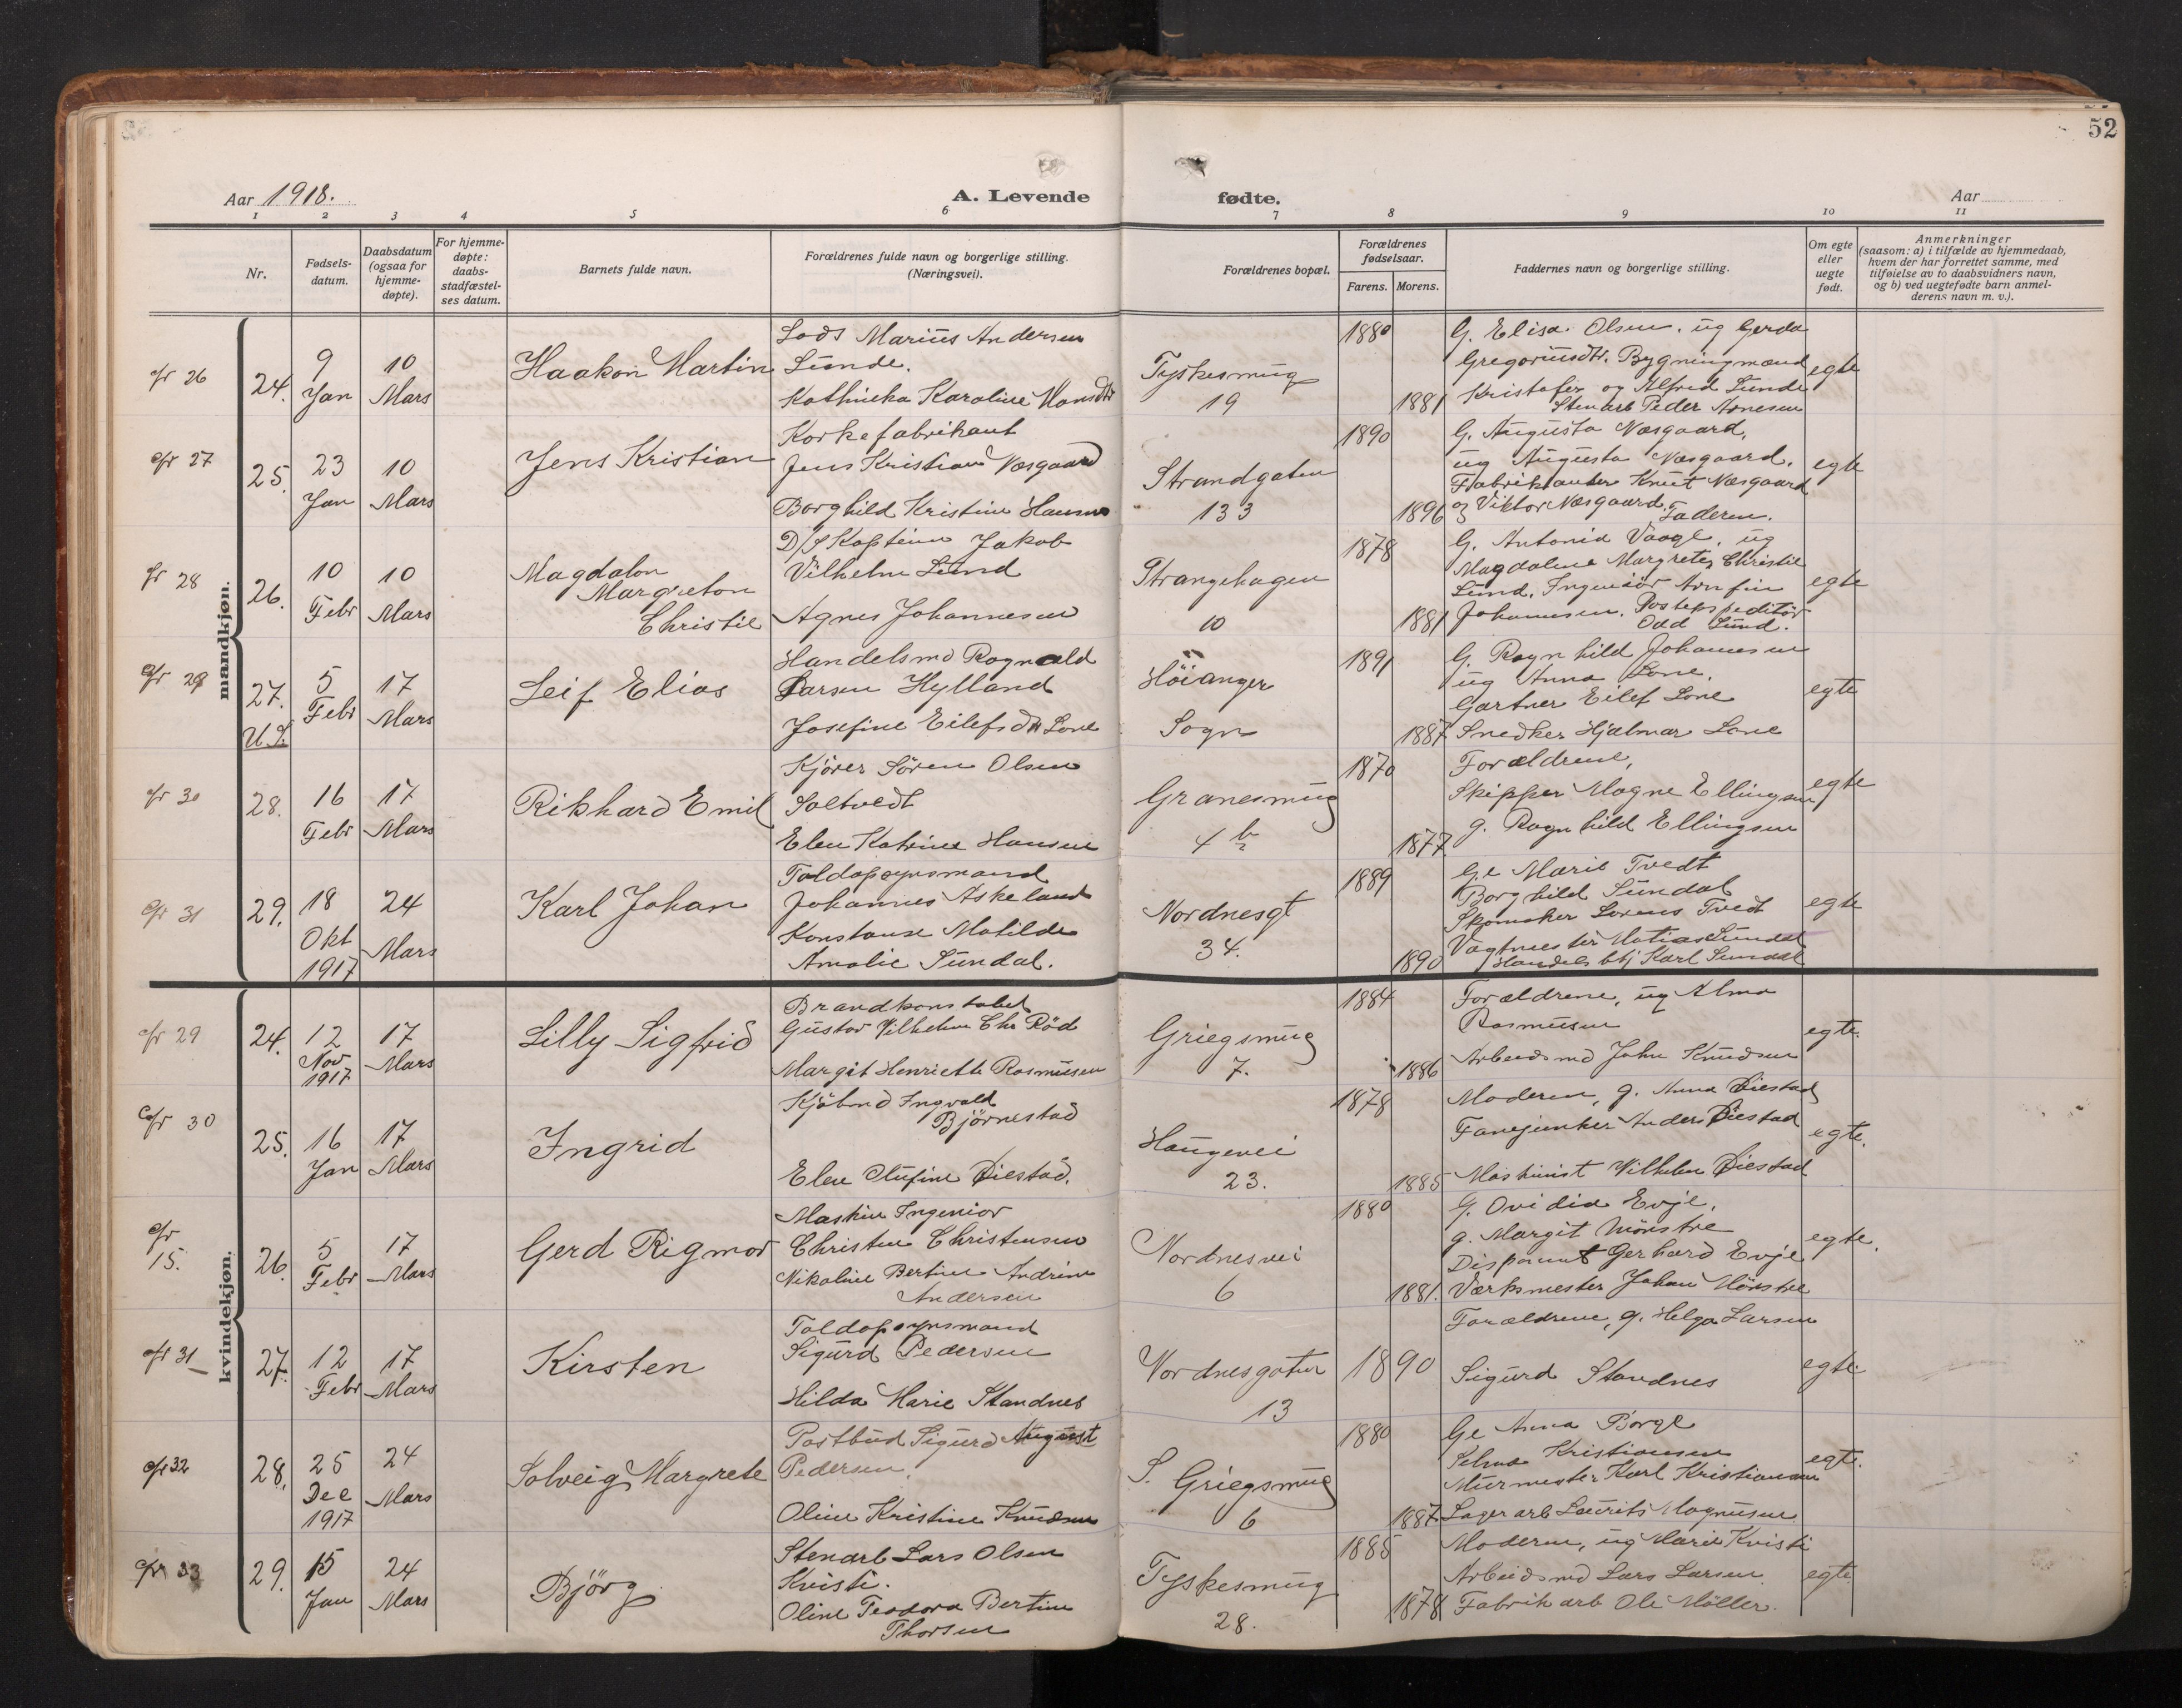 52
Aar 1918.
A. Levende fødte.
Aar
1 2 3 4 5 6 7 8 9 10 11
Nr.
Fødsels-
datum.
Daabsdatum
(ogsaa for
hjemme-
døpte).
For hjemme-
døpte:
daabs-
stadfæstel-
ses datum.
Barnets fulde navn.
Forældrenes fulde navn og borgerlige stilling.
(Næringsvei).
Forældrenes bopæl.
Forældrenes
fødselsaar.
Farens. Morens.
Faddernes navn og borgerlige stilling.
Om egte
eller
uegte
født.
Anmerkninger
(saasom: a) i tilfælde av hjemmedaab,
hvem der har forrettet samme, med
tilføielse av to daabsvidners navn,
og b) ved uegtefødte barn anmel-
derens navn m. v.).
mandkjøn.
26
24.
9
Jan
10
Mars
Haakon Martin
Lods Marius Andersen
Lunde.
Kathinka Karoline Hansdtr
Tyskesmug
19
1880
1881
G. Elisa Olsen, ug Gerda
Gregoriusdtr. Bygningmænd
Kristofer og Alfred Lunde
Stenarb Peder Arnesen
egte
27
25.
23
Jan
10
Mars
Jens Kristian
Korkefabrikant
Jens Kristian Næsgaard
Borghild Kristine Hansen
Strandgaten
133
1890
1896
G. Augusta Næsgaard,
ug Augusta Næsgaard.
Fabrikanter Knut Næsgaard
og Viktor Næsgaard. Faderen.
egte
28
26.
10
Febr
10
Mars
Magdalon
Margreton
Christie
D/S Kaptein Jakob
Vilhelm Lund
Agnes Johannesen
Strangehagen
10
1878
1881
G. Antonia Vaage, ug
Magdalene Margrete Christie
Lund. Ingeniör Arnfin
Johannesen. Postekspeditör
Odd Lund.
egte
29
27.
U.S.
5
Febr
17
Mars
Leif Elias
Handelsmd Ragnvald
Larsen Hylland
Josefine Eilefsdtr Lone
Höianger
Sogn
1891
1887
G. Ragnhild Johannesen
ug Anna Lone.
Gartner Eilef Lone
Snedker Hjalmar Lone
egte
30
28.
16
Febr
17
Mars
Rikhard Emil
Kjörer Sören Olsen
Soltvedt
Elen Katrine Hansen
Granesmug
4 b
1870
1877.
Forældrene,
Skipper Magne Ellingsen
g. Ragnhild Ellingsen
egte
31
29.
18
Okt
1917
24
Mars
Karl Johan
Toldopsynsmand
Johannes Askeland
Konstanse Matilde
Amalie Sundal.
Nordnesgt
34.
1889
1890
Ge Marie Tvedt
Borghild Sundal
Skomaker Lorens Tvedt
Vagtmester Matias Sundal
Handelsbtj Karl Sundal
egte
kvindekjøn.
29
24.
12
Nov
1917
17
Mars
Lilly Sigfrid
Brandkonstabel
Gustav Vilhelm Chr Röd
Margit Henriette Rasmussen
Griegsmug
7.
1884
1886
Forældrene, ug Alma
Rasmussen
Arbeidsmd John Knudsen
egte.
30
25.
16
Jan
17
Mars
Ingrid
Kjöbmd Ingvald
Björnestad
Elen Olufine Öiestad.
Haugevei
23.
1878
1885
Moderen, g. Anna Öiestad
Fanejunker Anders Öiestad
Maskinist Vilhelm Öiestad
egte.
15.
26.
5
Febr
17
Mars
Gerd Rigmor
Maskin Ingeniör
Christen Christensen
Nikoline Bertine Andrine
Andersen
Nordnesvei
6
1880
1881.
G. Ovidia Evje.
g. Margit Mönstre
Disponent Gerhard Evje
Værksmester Johan Mönstre
egte.
31
27.
12
Febr
17
Mars
Kirsten
Toldopsynsmand
Sigurd Pedersen
Hilda Marie Standnes
Nordnesgaten
13
1890
Forældrene, g. Helga Larsen
Sigurd Standnes
egte.
32
28.
25
Dec
1917
24
Mars
Solveig Margrete
Postbud Sigurd August
Pedersen.
Oline Kristine Knudsen
S. Griegsmug
6
1880
1887.
Ge Anna Borge
Selma Kristiansen
Murmester Karl Kristiansen
Lagerarb Laurits Magnussen
egte.
33
29.
15
Jan
24
Mars
Björg
Stenarb Lars Olsen
Kvisti.
Oline Teodora Bertine
Thorsen
Tyskesmug
28.
1885
1878
Moderen, ug Marie Kvisti
Arbeidsmd Lars Larsen
Fabrikarb Ole Möller.
egte